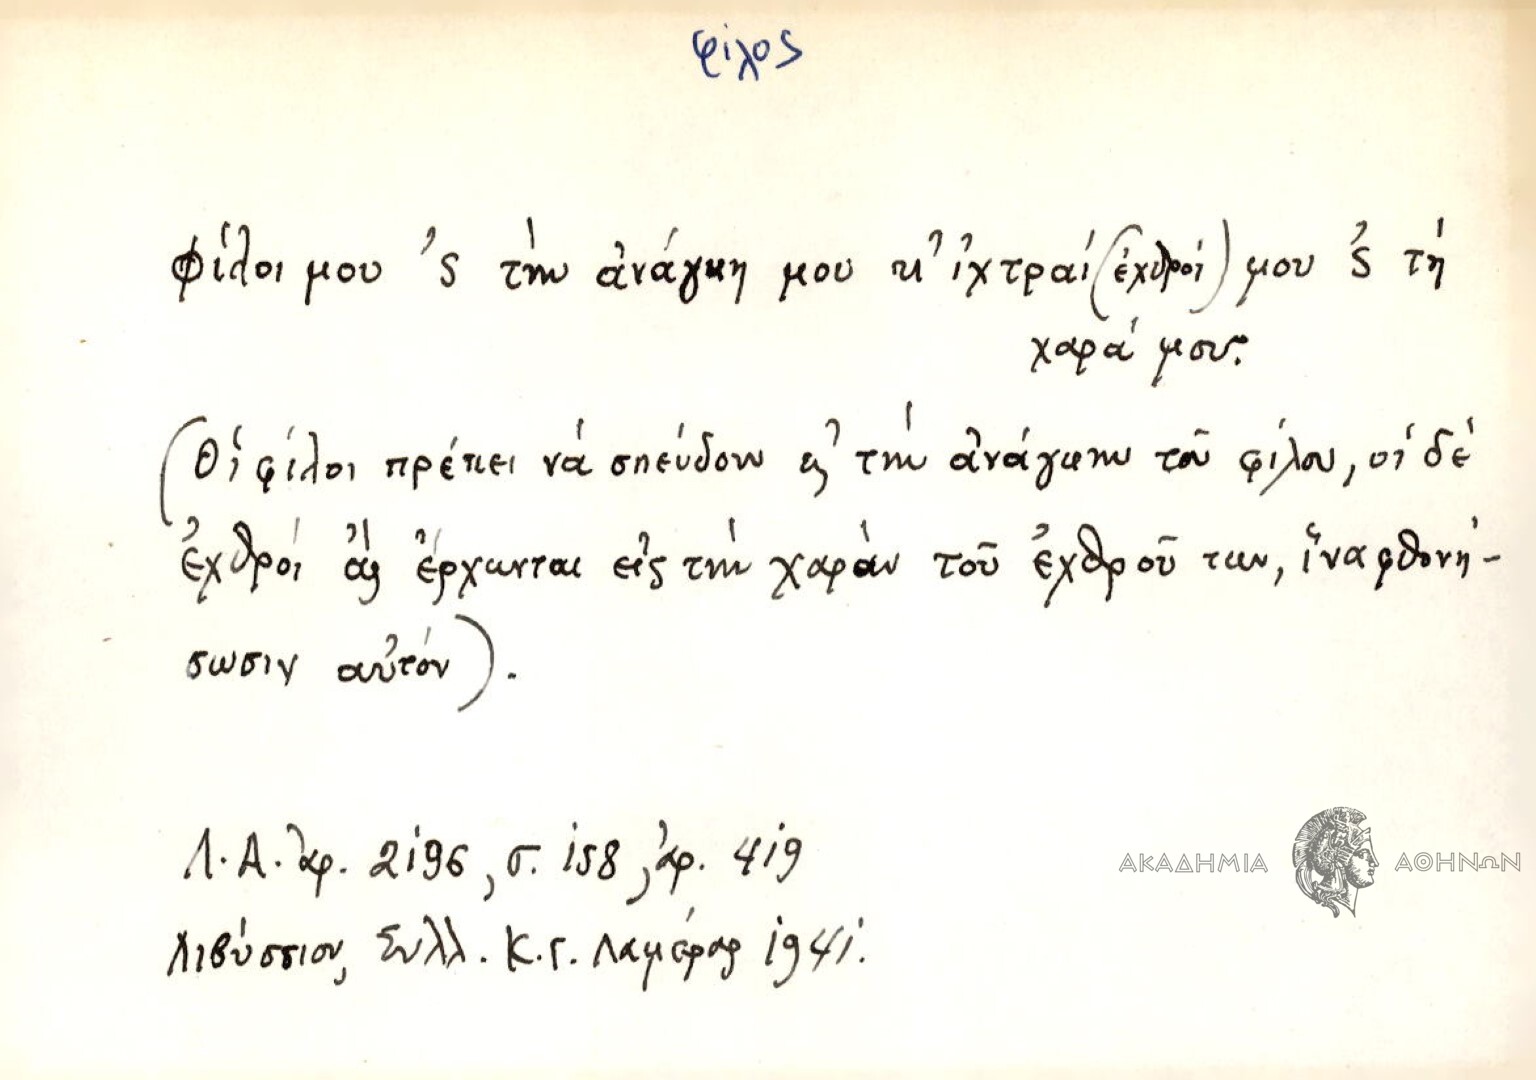 φίλος
Φίλοι μου 'ς τὴν ἀνάγκη μου κ' ἰχτραί (ἐχθροί) μου 'ς τὴ
χαρά μου.
(Οἱ φίλοι πρέπει νὰ σπεύδουν εἰς τὴν ἀνάγκην τοῦ φίλου, οἱ δὲ
ἐχθροί ἂς ἔρχωνται εἰς τὴν χαρὰν τοῦ ἐχθροῦ των, ἵνα φθονή-
σωσιν αὐτόν).
Λ.Α. ἀρ. 2196, σ. 158, ἀρ. 419
Λιβύσσιον, Συλλ. Κ.Γ. Λαμέρας 1941.
ΑΚΑΔΗΜΙΑ ΑΘΗΝΩΝ